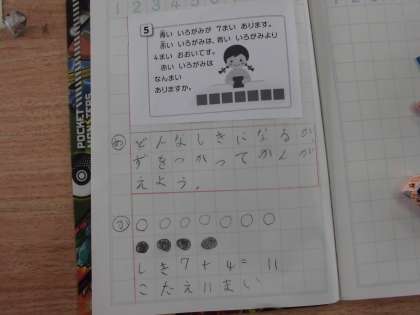 1 2 3 4 5 6
5
青い いろがみが 7まい あります。
赤い いろがみは、青い いろがみより
4まい おおいです。
赤い いろがみは
なんまい
ありますか。
め どんなしきになるか、
ずをつかってかんが
えよう。
ず
しき7+4=11
こたえ11まい
POCKET
MONSTERS